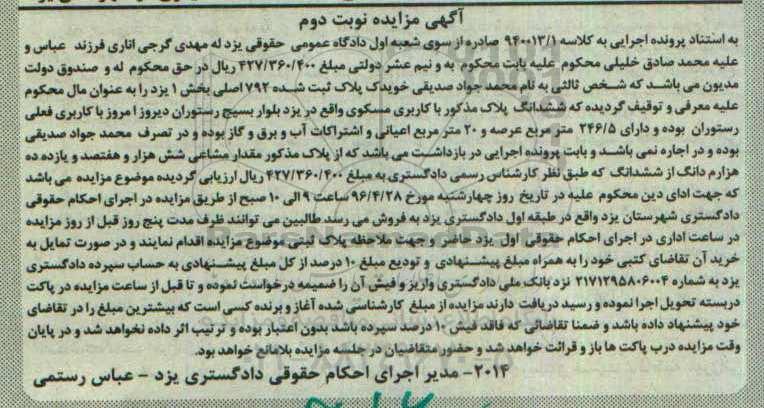 آگهی مزایده نوبت دوم
به استناد پرونده اجرایی به کلاسه ۹۴۰۰۱۳/۱ صادره از سوی شعبه اول دادگاه عمومی حقوقی یزد له مهدی گرجی اناری فرزند عباس و
علیه محمد صادق خلیلی محکوم علیه بابت محکوم به و نیم عشر دولتی مبلغ ۴۲۷/۳۶۰/۴۰۰ ریال در حق محکوم له و صندوق دولت
مدیون می باشد که شخص ثالثی به نام محمد جواد صدیقی خویدک پلاک ثبت شده ۷۹۲ اصلی بخش ۱ یزد را به عنوان مال محکوم
علیه معرفی و توقیف گردیده که ششدانگ پلاک مذکور با کاربری مسکوی واقع در یزد بلوار بسیج رستوران دیروز امروز با کاربری فعلی
رستوران بوده و دارای ۲۴۶/۵ متر مربع عرصه و ۲۰ متر مربع اعیانی و اشتراکات آب و برق و گاز بوده و در تصرف محمد جواد صدیقی
بوده و در اجاره نمی باشد و بابت پرونده اجرایی در بازداشت می باشد که از پلاک مذکور مقدار مشاعی شش هزار و هفتصد و یازده ده
هزارم دانگ از ششدانگ که طبق نظر کارشناس رسمی دادگستری به مبلغ ۴۲۷/۳۶۰/۴۰۰ ریال ارزیابی گردیده موضوع مزایده می باشد
که جهت ادای دین محکوم علیه در تاریخ روز چهارشنبه مورخ ۹۶/۴/۲۸ ساعت ۹ الی ۱۰ صبح از طریق مزایده در اجرای احکام حقوقی
دادگستری شهرستان یزد واقع در طبقه اول دادگستری یزد به فروش می رسد طالبین می توانند ظرف مدت پنج روز قبل از روز مزایده
در ساعت اداری در اجرای احکام حقوقی اول یزد حاضر و جهت ملاحظه پلاک ثبتی موضوع مزایده اقدام نمایند و در صورت تمایل به
خرید آن تقاضای کتبی خود را به همراه مبلغ پیشنهادی و تودیع مبلغ ۱۰ درصد از کل مبلغ پیشنهادی به حساب سپرده دادگستری
یزد به شماره ۲۱۷۱۲۹۵۸۰۶۰۰۴ نزد بانک ملی دادگستری واریز و فیش آن را ضمیمه درخواست نموده و تا قبل از ساعت مزایده در پاکت
دربسته تحویل اجرا نموده و رسید دریافت دارند مزایده از مبلغ کارشناسی شده آغاز و برنده کسی است که بیشترین مبلغ را در تقاضای
خود پیشنهاد داده باشد و ضمنا تقاضائی که فاقد فیش ۱۰ درصد سپرده باشد بدون اعتبار بوده و ترتیب اثر داده نخواهد شد و در پایان
وقت مزایده درب پاکت ها باز و قرائت خواهد شد و حضور متقاضیان در جلسه مزایده بلامانع خواهد بود.
۲۰۱۴- مدیر اجرای احکام حقوقی دادگستری یزد - عباس رستمی